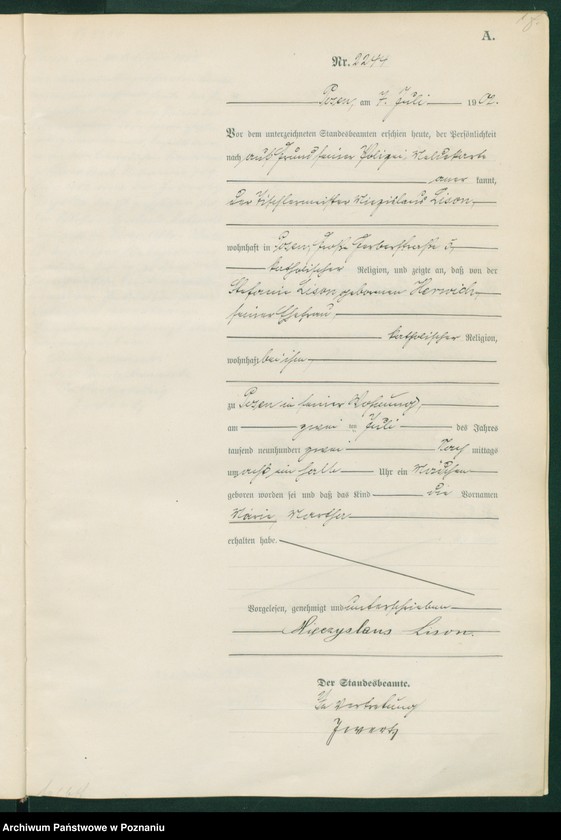 A.
Nr. 2244
Posen, am 7. Juli 1902.
Vor dem unterzeichneten Standesbeamten erschien heute, der Persönlichkeit
nach auf Grund seiner Polizei Meldekarte
aner kannt,
der Tischlermeister Miecislaus Lison,
wohnhaft in Posen, Große Gerberstraße 5,
katholischer Religion, und zeigte an, daß von der
Stefanie Lison geborenen Herwich
seiner Ehefrau
katholischer Religion,
wohnhaft bei ihm
zu Posen in seiner Wohnung,
am zwei ten Juli des Jahres
tausend neunhundert zwei Nach mittags
um acht ein halb Uhr ein Mädchen
geboren worden sei und daß das Kind die Vornamen
Marie, Martha
erhalten habe.
Vorgelesen, genehmigt und unterschrieben
Mieczyslaus Lison.
Der Standesbeamte.
In Vertretung
Archiwum Państwowe w Poznaniu